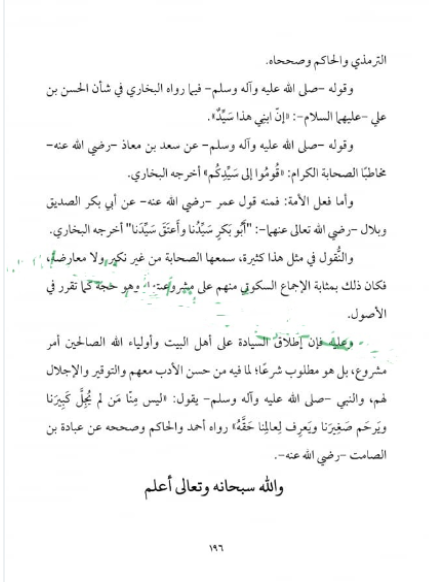 الترمذي والحاكم وصححاه.
وقوله –صلى الله عليه وآله وسلم– فيما رواه البخاري في شأن الحسن بن
علي –عليهما السلام–: «إنّ ابني هذا سَيِّدٌ».
وقوله –صلى الله عليه وآله وسلم– عن سعد بن معاذ –رضي الله عنه–
مخاطبًا الصحابة الكرام: «قُومُوا إلى سَيِّدِكُم» أخرجه البخاري.
وأما فعل الأمة: فمنه قول عمر –رضي الله عنه– عن أبي بكر الصديق
وبلال –رضي الله تعالى عنهما–: "أَبُو بَكرٍ سَيِّدُنا وأَعتَقَ سَيِّدَنا" أخرجه البخاري.
والنُّقول في مثل هذا كثيرة، سمعها الصحابة من غير نكير ولا معارضة،
فكان ذلك بمثابة الإجماع السكوتي منهم على مشروعيته، وهو حجة كما تقرر في
الأصول.
وعليه فإن إطلاق السيادة على أهل البيت وأولياء الله الصالحين أمر
مشروع، بل هو مطلوب شرعًا؛ لما فيه من حسن الأدب معهم والتوقير والإجلال
لهم، والنبي –صلى الله عليه وآله وسلم– يقول: «ليس مِنَّا مَن لم يُجِلَّ كَبِيرَنا
ويَرحَم صَغِيرَنا ويَعرِف لِعالِمِنا حَقَّهُ» رواه أحمد والحاكم وصححه عن عبادة بن
الصامت –رضي الله عنه–.
والله سبحانه وتعالى أعلم
١٩٦